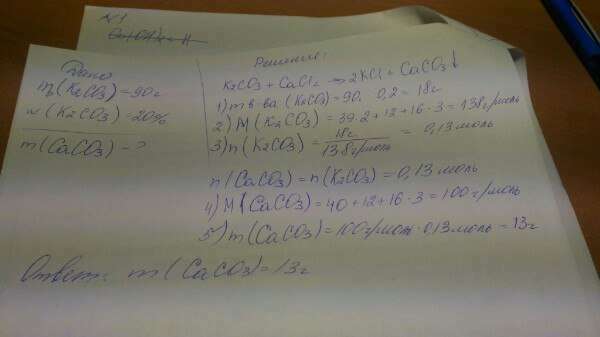 N1
Дано
mр(K2CO3) = 90г
w(K2CO3) = 20%
m(CaCO3) - ?
Решение:
K2CO3 + CaCl2 → 2KCl + CaCO3↓
1) m в-ва (K2CO3) = 90 · 0,2 = 18г
2) M(K2CO3) = 39·2+12+16·3 = 138г/моль
3) n(K2CO3) = 18г / 138г/моль = 0,13моль
n(CaCO3) = n(K2CO3) = 0,13моль
4) M(CaCO3) = 40+12+16·3 = 100г/моль
5) m(CaCO3) = 100г/моль · 0,13моль = 13г
Ответ: m(CaCO3) = 13г